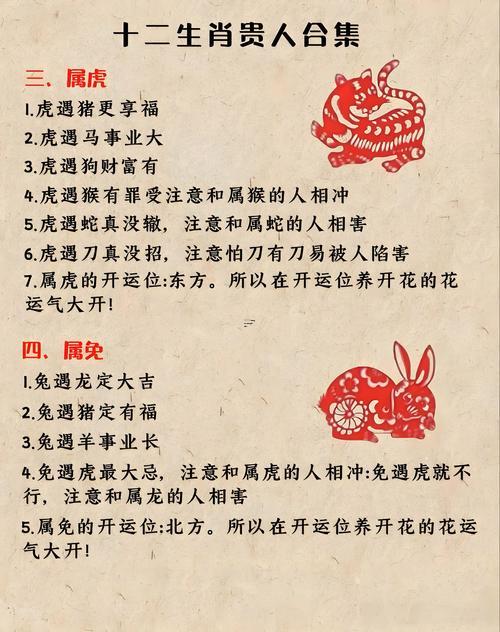 十二生肖贵人合集
三、属虎
1.虎遇猪更享福
2.虎遇马事业大
3.虎遇狗财富有
4.虎遇猴有罪受注意和属猴的人相冲
5.虎遇蛇真没辙，注意和属蛇的人相害
6.虎遇刀真没招，注意怕刀有刀易被人陷害
7.属虎的开运位:东方。所以在开运位养开花的花
运气大开!
四、属兔
1.兔遇龙定大吉
2.兔遇猪定有福
3.兔遇羊事业长
4.兔遇虎最大忌，注意和属虎的人相冲:兔遇虎就不
行，注意和属龙的人相害
5.属兔的开运位:北方。所以在开运位养开花的花运
气大开!